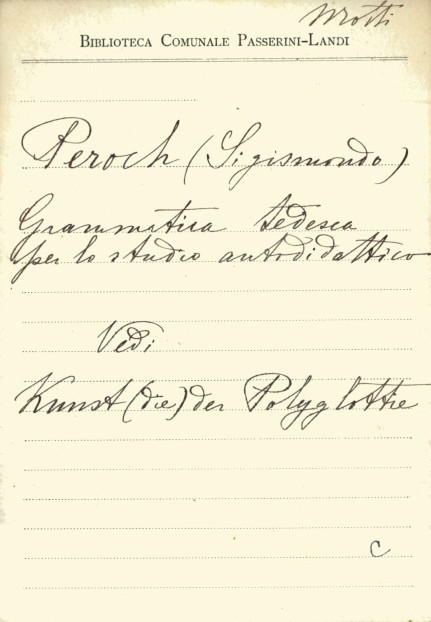 Biblioteca Comunale Passerini-Landi
Peroch (Sigismondo)
Grammatica tedesca
per lo studio autodidattico
Vedi
Kunst (die) der Polyglottie
C